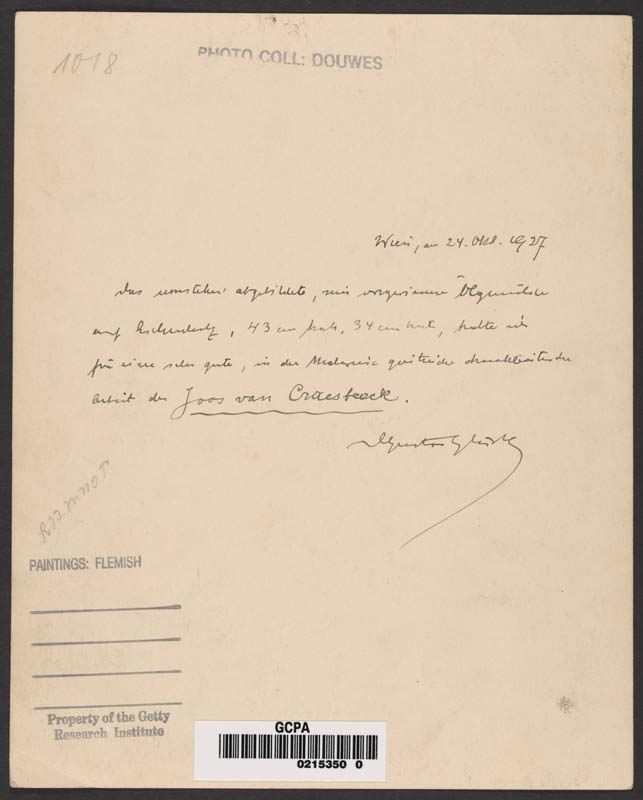 1018
PHOTO COLL: DOUWES
Wien, am 24. Okt. 1927
Das umstehend abgebildete, mir vorgewiesene Ölgemälde
auf Eichenholz, 43 cm hoch, 34 cm breit, halte ich
für eine sehr gute, in der Malweise geistreiche charakteristische
Arbeit des Joos van Craesbeeck.
Gustav Glück
PAINTINGS: FLEMISH
Property of the Getty
Research Institute
GCPA
0215350 0